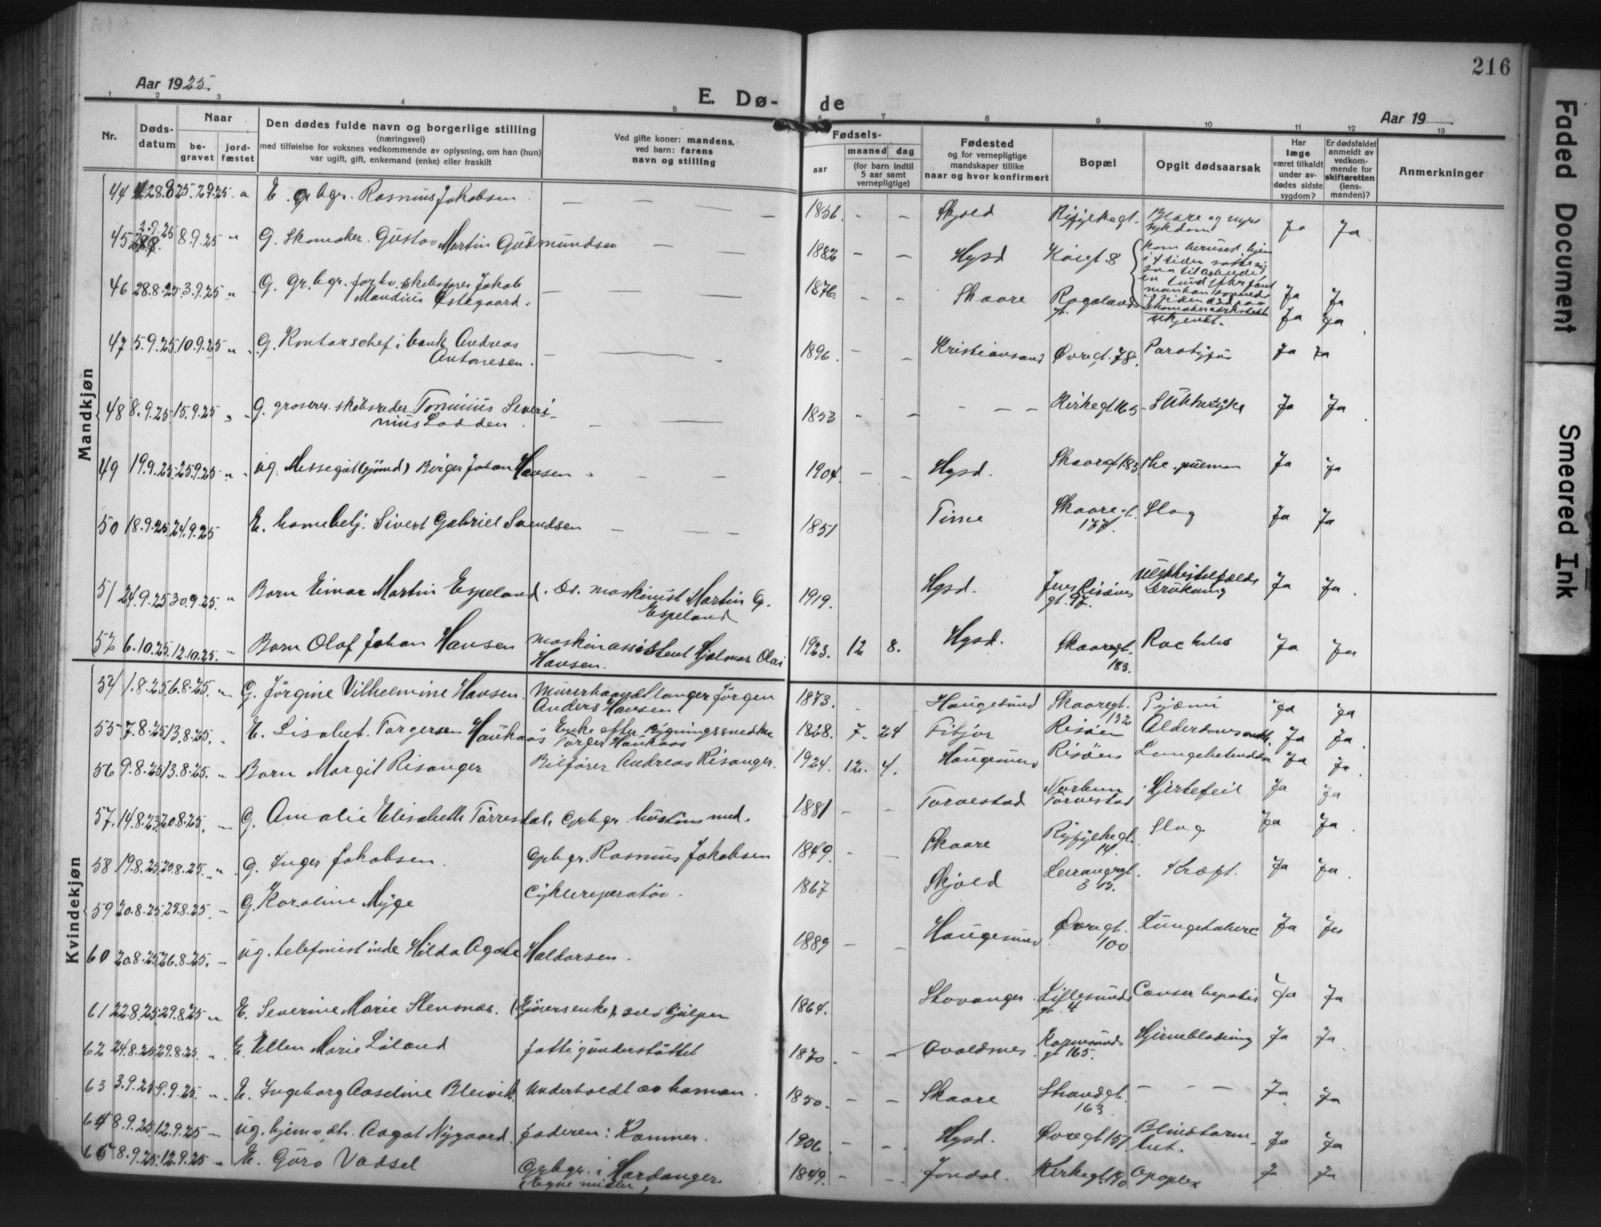 216
Aar 1925.
E. Dø- de
Aar 19
1 2 3 4 5 6 7 8 9 10 11 12 13
Nr.
Døds-
datum
Naar
be-
gravet
jord-
fæstet
Den dødes fulde navn og borgerlige stilling
(næringsvei)
med tilføielse for voksnes vedkommende av oplysning, om han (hun)
var ugift, gift, enkemand (enke) eller fraskilt
Ved gifte koner: mandens,
ved barn: farens
navn og stilling
Fødsels-
aar
maaned dag
(for barn indtil
5 aar samt
vernepligtige)
Fødested
og for vernepligtige
mandskaper tillike
naar og hvor konfirmert
Bopæl
Opgit dødsaarsak
Har
læge
været tilkaldt
under av-
dødes sidste
sygdom?
Er dødsfaldet
anmeldt av
vedkom-
mende for
skifteretten
(lens-
manden)?
Anmerkninger
Mandkjøn
44 28.8.25 2.9.25 E. grbgr. Rasmus Jakobsen 1856 Skjold Ryfylkegt. Blære og nyre sykdom Ja Ja
45 8.9.25 G. Skomaker Gustav Martin Gudmundsen 1882 Hgsd 8
46 28.8.25 3.9.25 G. Gr.bgr. forhv. skibsfører Jakob Mandius Østegaard. 1876 Skaare Rogalands gt. Ukjent. Ja Ja
47 5.9.25 10.9.25 G. Kontorschef i bank Andreas Antonesen. 1896 Kristiansand Øvregt. 78. Paratyfus Ja Ja
48 8.9.25 15.9.25 G. grosserer skibsreder Tormius Severi-
nus Lodden. 1853 Kirkegt 165 Sukkersyke Ja Ja
49 19.9.25 25.9.25 ug. Messegut (sjømd) Birger Johan Hansen 1904 Hgsd. Skaaregt 183 Ja Ja
50 18.9.25 24.9.25 E. Sivert Gabriel Svendsen 1851 Time Skaaregt. 177. Slag Ja Ja
51 24.9.25 30.9.25 Barn Einar Martin Espeland. Ds. maskinist Martin G.
Espeland 1919. Hgsd. Risøens gt. 97. Ulykkestilfælde Drukning Ja Ja
52 6.10.25 12.10.25 Barn Olaf Johan Hansen maskinassistent Hjalmar Olai
Hansen. 1923. 12 8. Hgsd. Skaaregt. 183. Rachitis Ja Ja
Kvindekjøn
54 1.8.25 6.8.25. G. Jørgine Vilhelmine Hansen. Murerhaandtlanger Jørgen
Anders Hansen 1873. Haugesund Skaaregt. 132 Pyæmi Ja Ja
55 7.8.25 13.8.25. E. Lisabet Torgersen Haukaas Enke efter Bygningssnedker
Torger Haukaas 1868 7. 24 Fitjar Risøen Ja Ja
56 9.8.25 13.8.25. Barn Margit Risanger Bilfører Andreas Risanger. 1924. 12. 4. Haugesund Risøen Lungebetændelse Ja Ja
57. 14.8.25 20.8.25. G. Amalie Elisabeth Torrestad, Grbgr. 1881 Torvestad Torvestad Hjertefeil Ja Ja
58 19.8.25 20.8.25. G. Inger Jakobsen. Grbgr. Rasmus Jakobsen 1849. Skaare Ryfylkegt. 14. Slag Ja Ja
59 20.8.25 25.8.25. G. Karoline Myge Cyklereparatør. 1867 Skjold Kræft. Ja Ja
60 20.8.25 26.8.25. ug. telefonistinde Hilda Agate Haldorsen. 1889 Haugesund Øvregt. 100 Lungetuberc Ja Ja
61 22.8.25 29.8.25 E. Severine Marie Stensnæs. 1864. Stavanger Lillesunds gt. 4 Cancer hepatis Ja Ja
62 24.8.25 29.8.25. E. Ellen Marie Liland fattigunderstøttet 1870 Avaldsnes Karmsunds gt 165. Hjerneblødning Ja Ja
63 3.9.25 9.9.25. E. Ingeborg Aaseline Bleivik Underholdt av kommun. 1850. Skaare Strandgt. 163. Ja Ja
64 8.9.25 12.9.25 ug. hjemvær. Aagot Nygaard. faderen: Kanner. 1906 Hgsd. Øvregt 157 Blindtarm-
bet. Ja Ja
65 8.9.25 12.9.25 E. Guro Vadsel Grbgr. i Hardanger
(Egne midler) 1849. Jondal. Kirkegt. 190 Apoplex Ja Ja
Faded Document
Smeared Ink